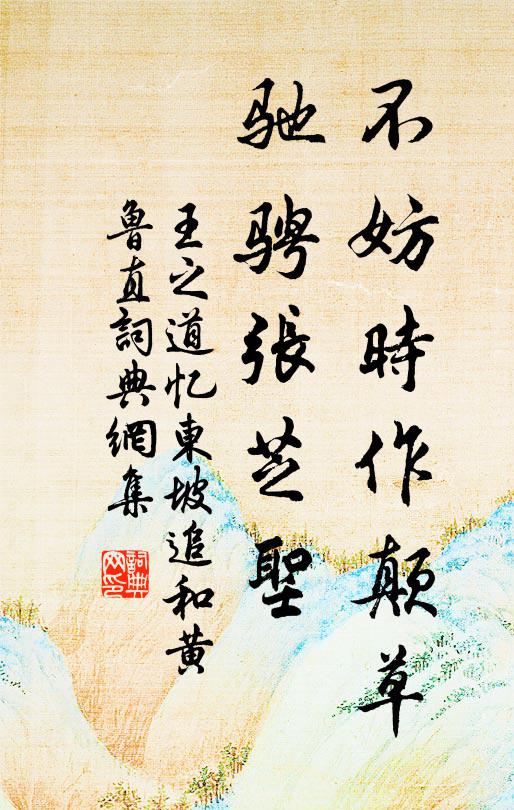 不妨時作颠草
驰骋張芝聖
王之道忆東坡追和黄
鲁直詞典網集
詞典
网印